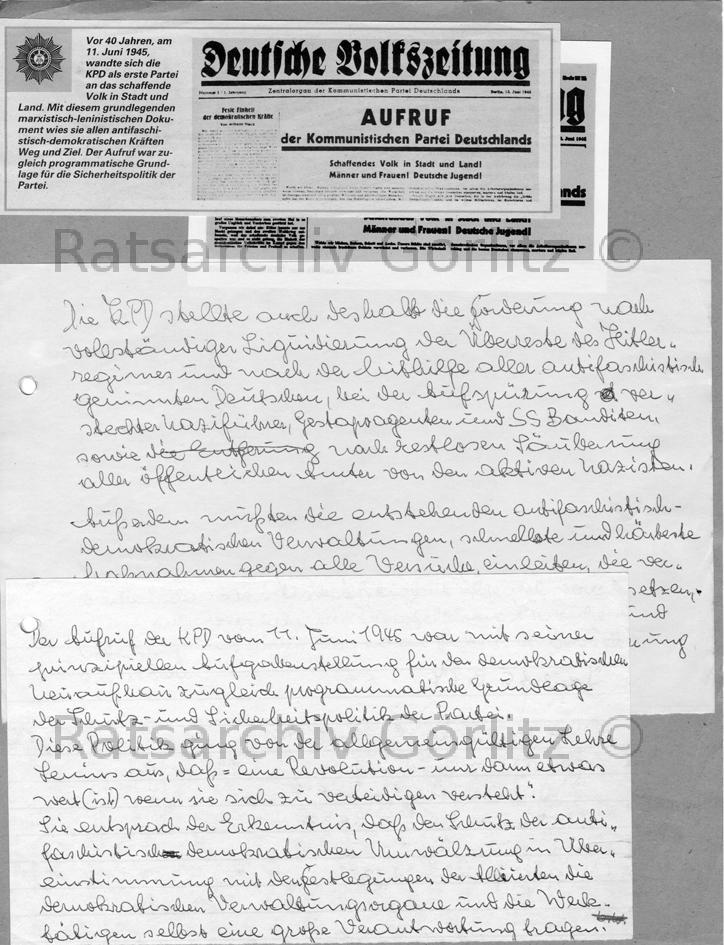 Vor 40 Jahren, am
11. Juni 1945,
wandte sich die
KPD als erste Partei
an das schaffende
Volk in Stadt und
Land. Mit diesem grundlegenden
marxistisch-leninistischen Doku-
ment wies sie allen antifaschi-
stisch-demokratischen Kräften
Weg und Ziel. Der Aufruf war zu-
gleich programmatische Grund-
lage für die Sicherheitspolitik der
Partei.
Deutsche Volkszeitung
Nummer 1 / 1. Jahrgang
Zentralorgan der Kommunistischen Partei Deutschlands
Berlin, 13. Juni 1945
Feste Einheit
der demokratischen Kräfte
Von Wilhelm Pieck
AUFRUF
der Kommunistischen Partei Deutschlands
Schaffendes Volk in Stadt und Land!
Männer und Frauen! Deutsche Jugend!
Juni 1945
Männer und Frauen! Deutsche Jugend!
Ratsarchiv Görlitz ©
Die KPD stellte auch deshalb die Forderung nach
vollständiger Liquidierung der Überreste des Hitler-
regimes und nach der Mithilfe aller antifaschistisch
gesinnten Deutschen, bei der Aufspürung ver-
steckter Naziführer, Gestapoagenten und SS Banditen,
sowie die Entfernung nach restlosen Säuberung
aller öffentlichen Ämter von den aktiven Nazisten.
Außerdem mußten die entstehenden antifaschistisch-
demokratischen Verwaltungen, schnellste und härteste
Maßnahmen gegen alle Versuche einleiten, die ver-
setzen,
und
Der Aufruf der KPD vom 11. Juni 1945 war mit seiner
prinzipiellen Aufgabenstellung für den demokratischen
Neuaufbau zugleich programmatische Grundlage
der Schutz- und Sicherheitspolitik der Partei.
Diese Politik ging von der allgemeingültigen Lehre
Lenins aus, daß = eine Revolution - nur dann etwas
wert (ist) wenn sie sich zu verteidigen versteht".
Sie entsprach der Erkenntnis, daß den Schutz der anti-
faschistisch demokratischen Umwälzung in Über-
einstimmung mit den Festlegungen der Alliierten die
demokratischen Verwaltungsorgane und die Werk-
tätigen selbst eine große Verantwortung tragen.
Ratsarchiv Görlitz ©